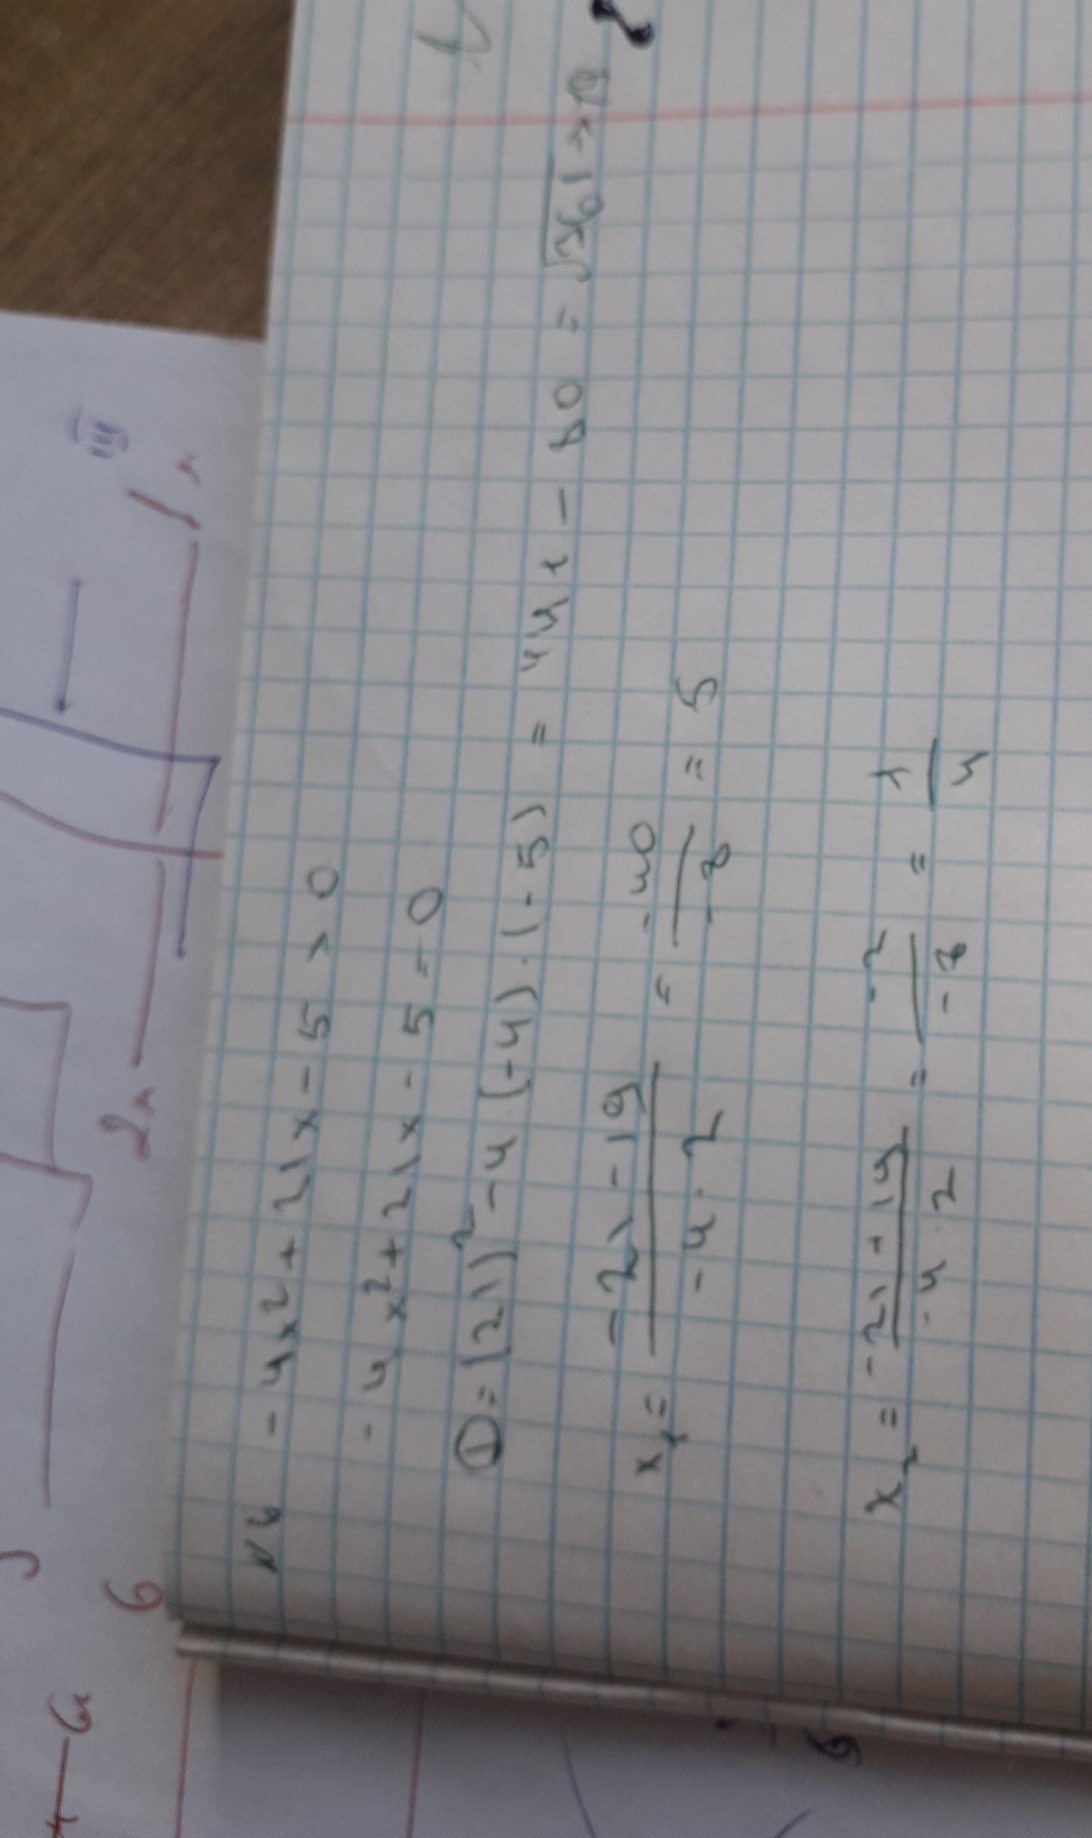 N 4 - 4x² + 21x - 5 > 0
- 4x² + 21x - 5 = 0
D = (21)² - 4 · (-4) · (-5) = 441 - 80 = √361 = 19
x₁ = (-21 - 19) / (-4 · 2) = -40 / -8 = 5
x₂ = (-21 + 19) / (-4 · 2) = -2 / -8 = 1 / 4
2x
6